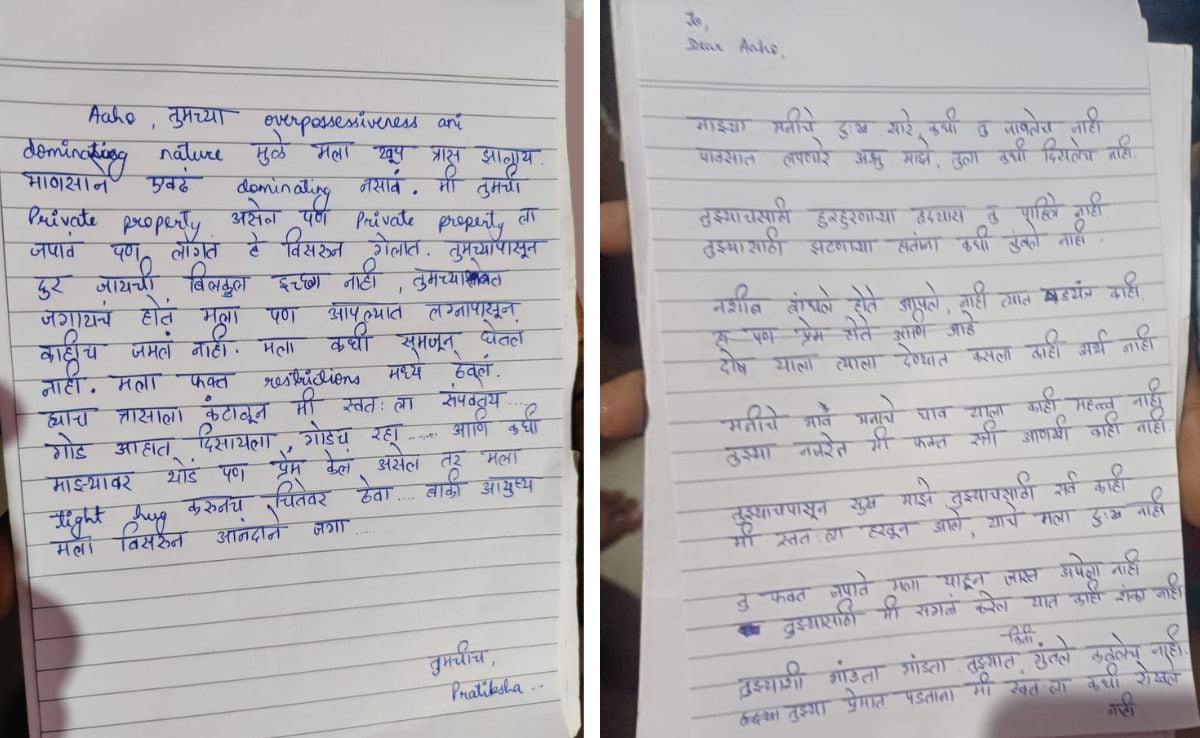 Aaho, तुमच्या overpossessiveness ani
dominating nature मुळे मला खूप त्रास झालाय.
माणसाने एवढं dominating नसावं. मी तुमची
Private property असेल पण Private property ला
जपावं पण लागतं हे विसरुन गेलात. तुमच्यापासून
दुर जायची बिलकुल इच्छा नाही, तुमच्यासोबत
जगायचं होतं मला पण आपल्यात लग्नापासून
काहीच जमलं नाही. मला कधी समजून घेतलं
नाही. मला फक्त restrictions मध्ये ठेवलं.
ह्याच त्रासाला कंटाळून मी स्वत:ला संपवतेय....
गोड आहात दिसायला, गोडच रहा..... आणि कधी
माझ्यावर थोडं पण प्रेम केलं असेल तर मला
tight hug करुनच चितेवर ठेवा.... बाकी आयुष्य
मला विसरुन आनंदाने जगा.....
तुमचीच,
Pratiksha...
To,
Dear Aaho,
माझ्या मनीचे दु:ख सारे, कधी तु जाणलेच नाही
पावसात लपणारे अश्रु माझे, तुला कधी दिसलेच नाही.
तुझ्याचसाठी हुरहुरणाऱ्या हृदयास तु पाहिले नाही
तुझ्यासाठी झटणाऱ्या हातांना कधी चुंबले नाही.
नशीब बांधले होते आपले, नाही त्यात षडयंत्र काही
पण प्रेम होते आणि आहे
दोष याला त्याला देण्यात कसला काही अर्थ नाही
मनीचे भाव मनाचे घाव याला काही महत्त्व नाही
तुझ्या नजरेत मी फक्त स्त्री आणखी काही नाही.
तुझ्याचपासून सुख माझे तुझ्याचसाठी सर्व काही
मी स्वत:ला हरवून आले, याचे मला दु:ख नाही
तु फक्त जपावे मला याहून जास्त अपेक्षा नाही
तुझ्यासाठी मी सगळं करेल यात काही शंका नाही
तुझ्याशी भांडता भांडता तुझ्यात किती गुंतले कळलेच नाही.
तुझ्या प्रेमात पडताना मी स्वत:ला कधी रोखले
नाही.